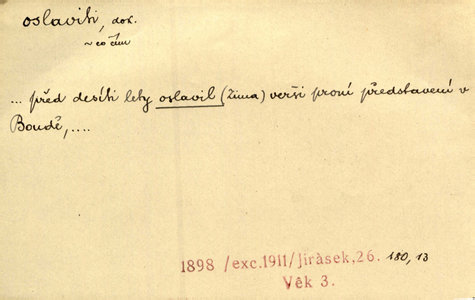 oslaviti, dok.
~ co čím
... před desíti lety oslavil (Žima) verši první představení v
Boudě, ....
1898 /exc.1911/Jirásek,26. 180,13
Věk 3.